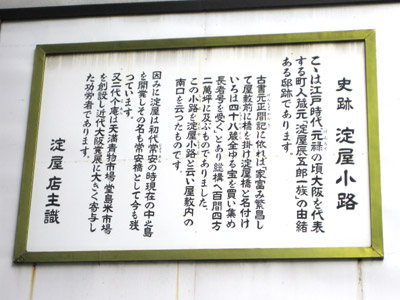 史跡 淀屋小路
こゝは江戸時代、元禄の頃大阪を代表
する町人蔵元「淀屋辰五郎一族」の由緒
ある邸跡であります。
古書元正間記に依れば、家富み繁昌し
て屋敷前に橋を掛け淀屋橋と名付け
いろは四十八蔵全ゆる宝を買い集め
長者号を受く」とあり総構へ百間四方
二萬坪に及ぶものでありました。
この小路を淀屋小路と云い屋敷内の
南口を云つたものです。
因みに淀屋は初代常安の時現在の中之島
を開発しその名も常安橋として今も残
つています。
又二代个庵は天満青物市場、堂島米市場
を創設し近代大阪発展に大きく寄与し
た功労者であります。
淀屋店主識